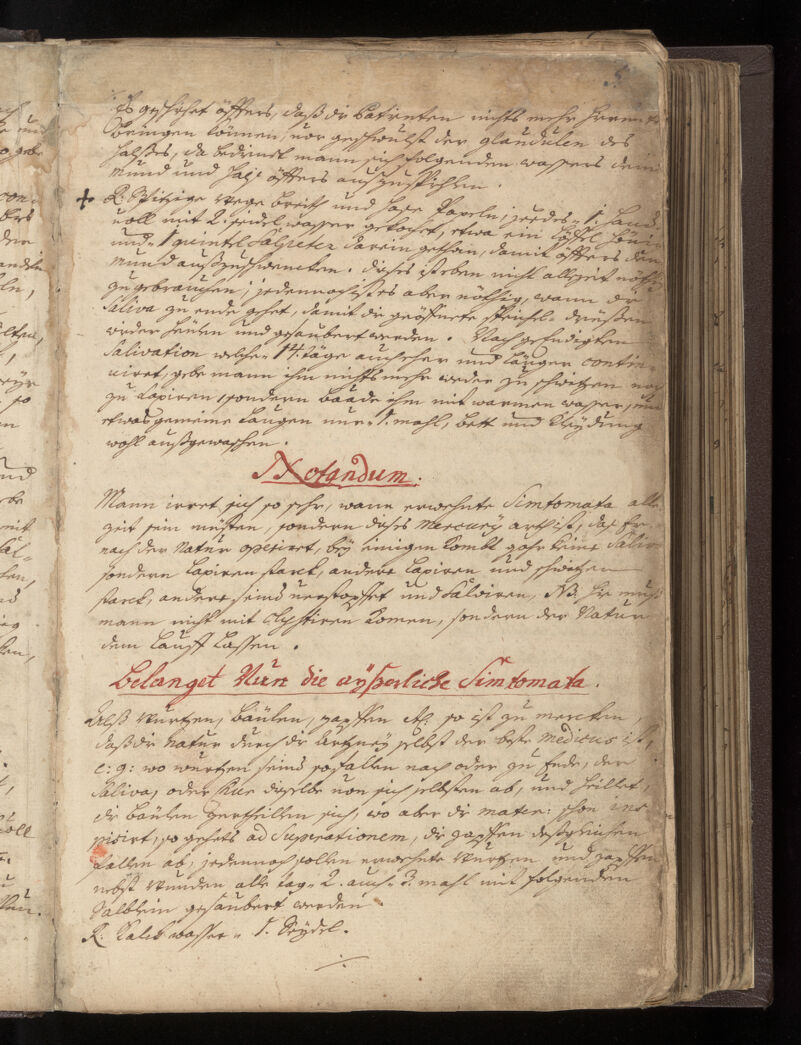 5.
Es geschihet öffters, daß die Patienten nichts mehr herunter
bringen können, vor geschwulst der glandulen des
halßes, da bedienet mann sich folgenden wassers den
mund und halß öffters auszuspihlen.
+ R. Spitzige wege breith und hase Papeln, jeedes 1. hand
voll mit 2. seidel wasser gekocht, etwa ein löffel hönig
und 1 quintel Salpeter darein gethan, damit öffters den
mund außzuschwencken. dieses ist eben nicht allzeit nöthig
zu gebrauchen, jedennoch ist es aber nöthig, wann die
Saliva zu ende gehet, damit die geöffnete speichel-drüßen
wieder heilen und gesaubert werden. Nach geendigten
Salivation welche 14. täge auch eher und länger contin-
uiret, gebe mann ihm nichts mehr weder zu schwitzen noch
zu laxiren, sondern baade ihm mit warmen wasser, und
etwas gemeine laugen nur 1. mahl, bett und kleydung
wohl außgewaschen.
Notandum.
Mann irret sich so sehr, wann erwehnte Simtomata alle
zeit sein müsten, sondern dises Mercury arth ist, daß Er
nach der Natur operiret, bey einigen kombt gahr keine Saliva
sondern laxiren starck, andere laxiren und schwitzen
starck, andere seind verstopffet und Saliviren, NB. hie muß
mann nicht mit Clystiren komen, sondern der Natur
dem lauff lassen.
Belanget Nun die aüßerliche Simtomata.
Alß wartzen, bäulen, zapffen etc. so ist zu mercken,
daß die natur durch die Artzney selbst der beste medicus ist,
e: g: wo wartzen seind so fallen nach oder zu Ende, der
Saliva, oder Kur dieselbe von sich selbsten ab, und heillet,
die bäulen zertheillen sich, wo aber die mater: schon
so gehets ad Superationem, die zapffen deßgleichen
fallen ab, jedennoch sollen erwehnte wartzen und zapffen
nebst wunden alle tag 2. auch 3. mahl mit folgenden
Sälblein gesaubert werden
R. Kalck wasser 1. Seydel.